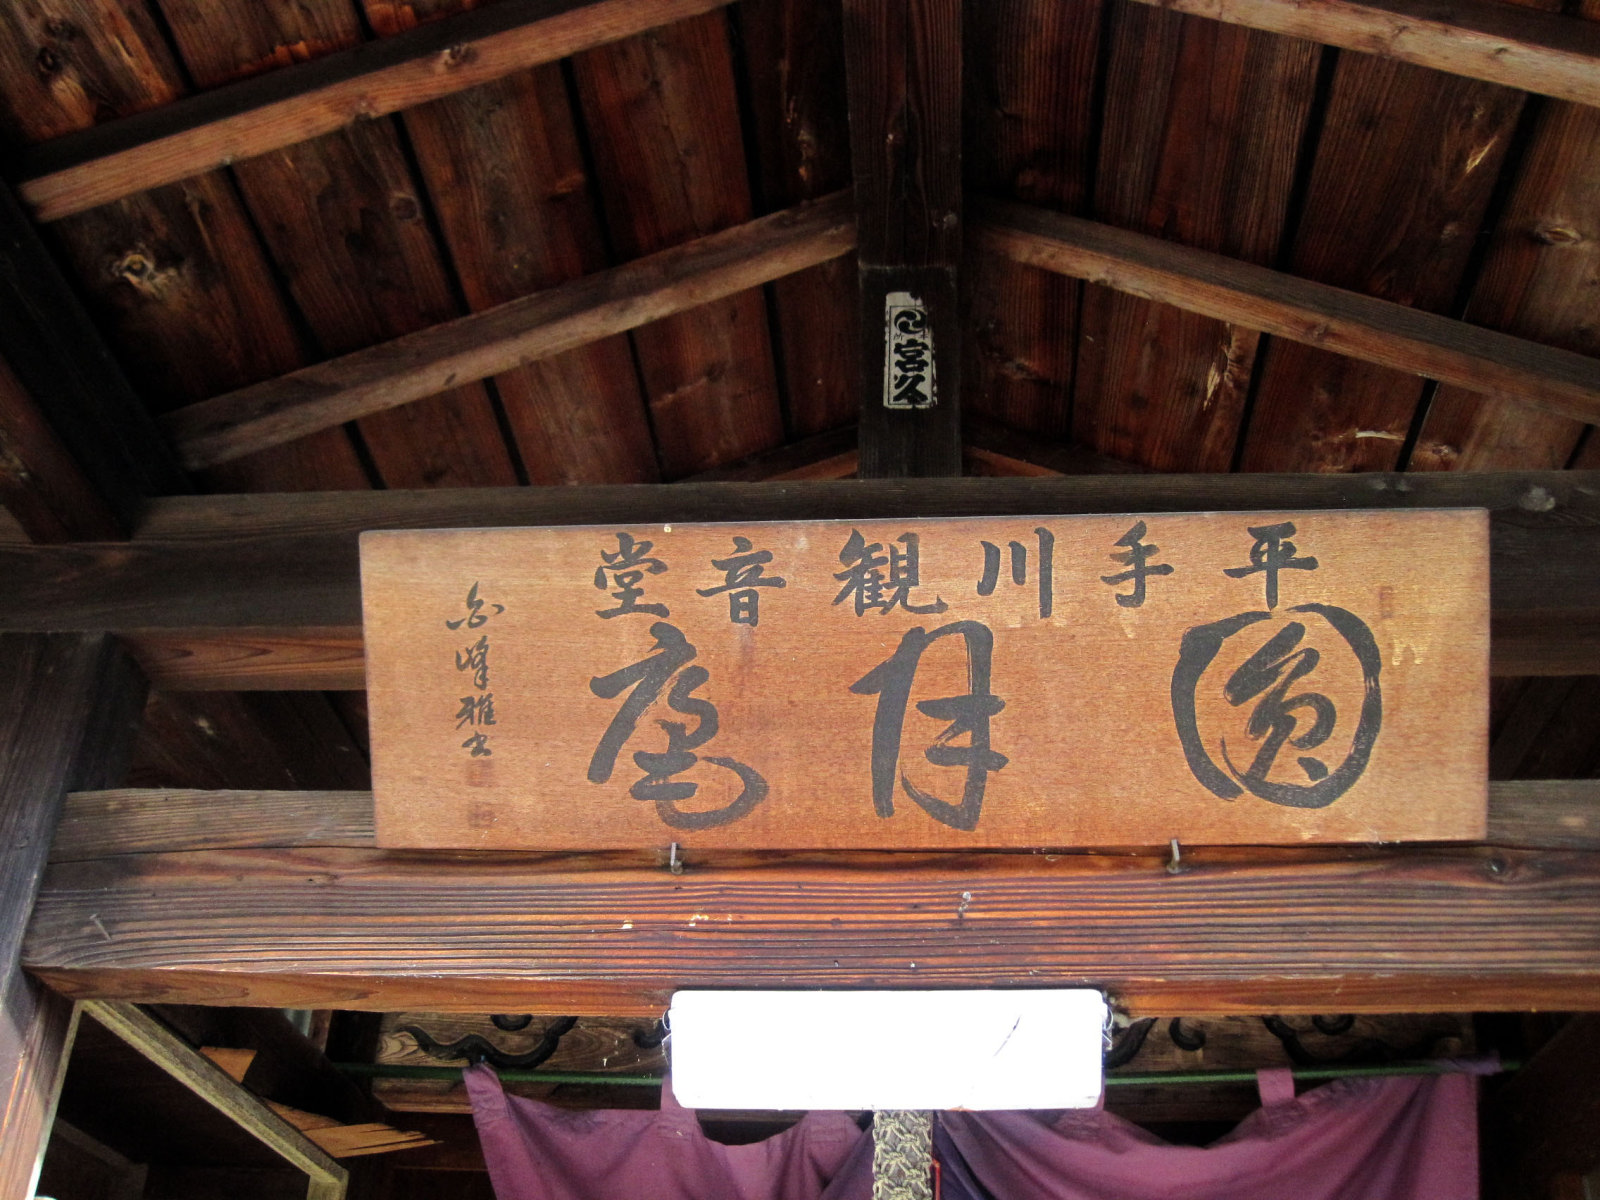 宮久
平手川観音堂
圓月庵
峰雅